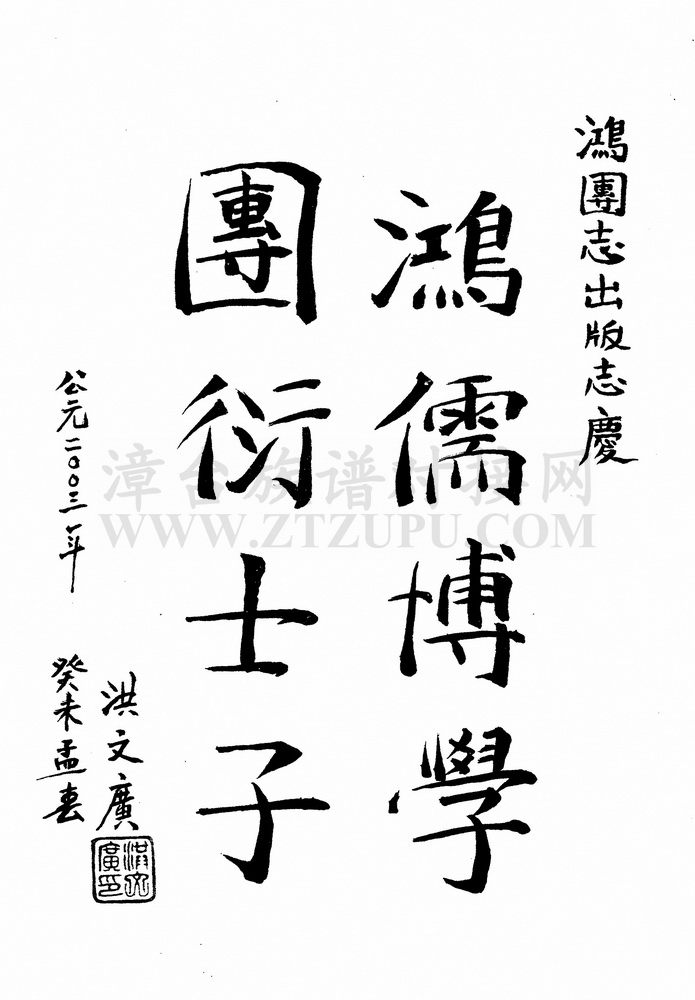 鴻團志出版志慶
鴻儒博學
團衍士子
公元二〇〇三年
癸未孟春
洪文廣
洪文廣印
漳台族谱对接网
WWW.ZTZUPU.COM